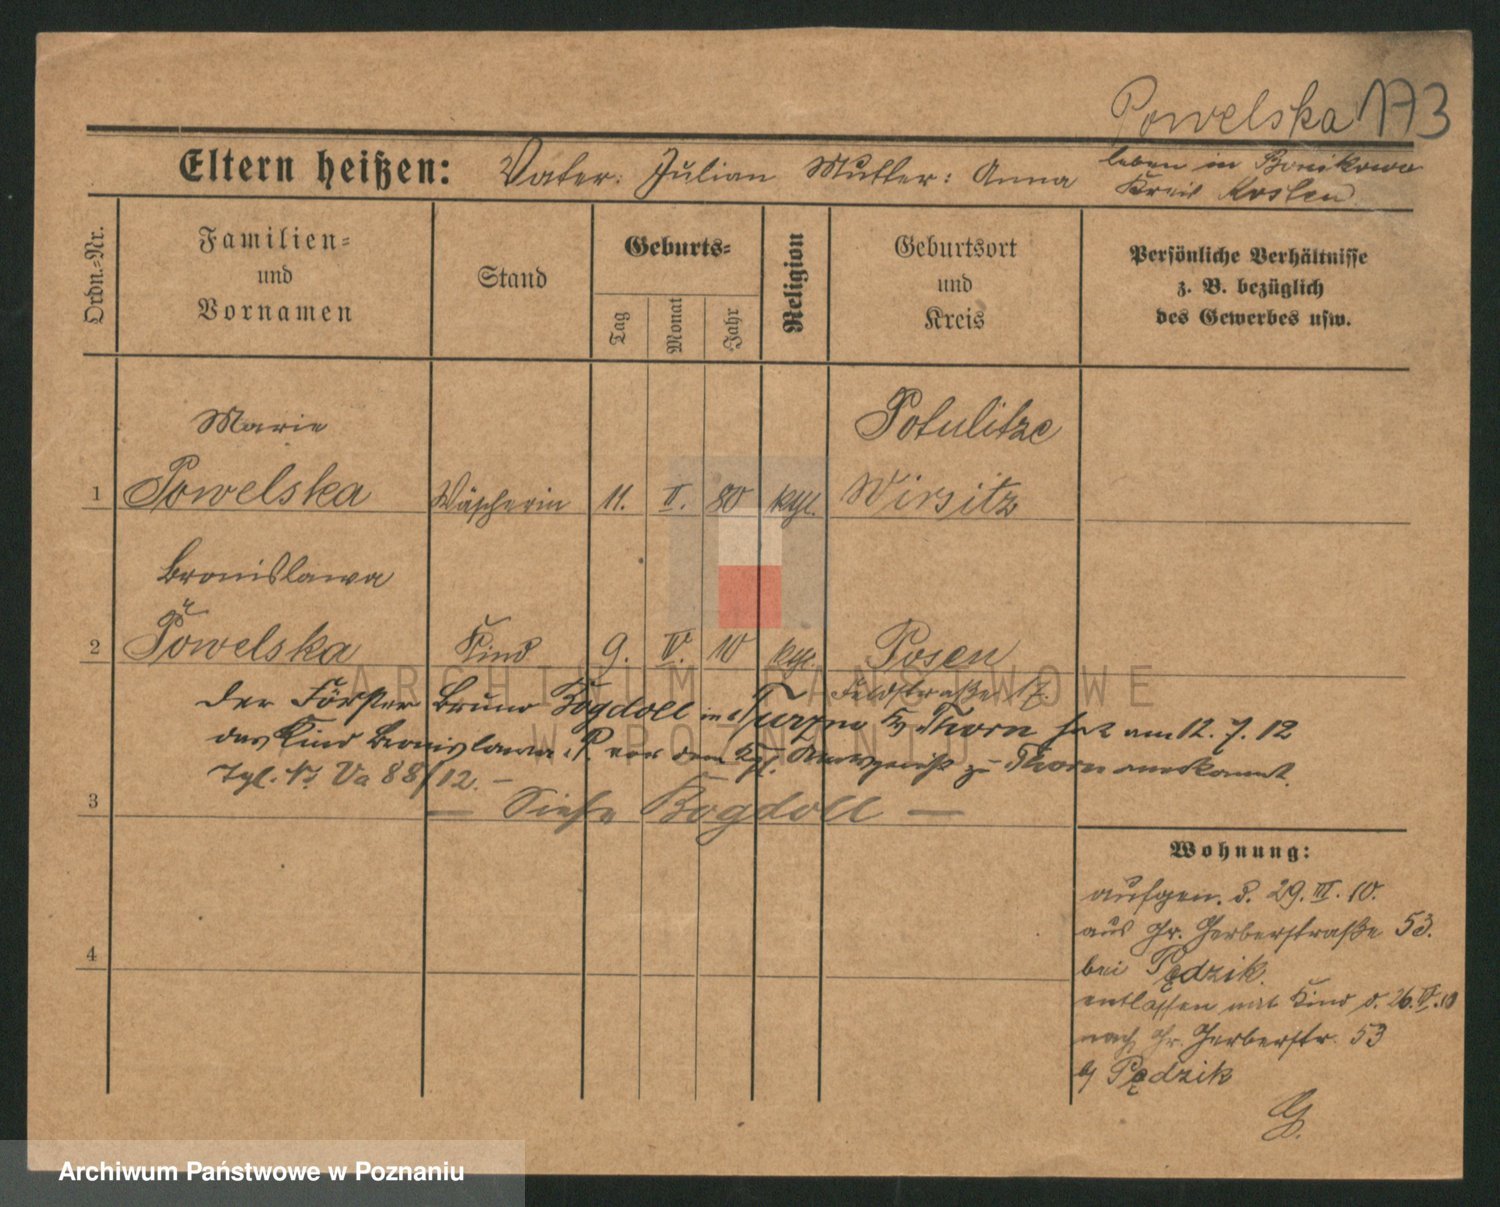 Powelska 173
Eltern heißen: Vater: Julian Mutter: Anna
leben in Bonikowo
Kreis Kosten
Ordn.-Nr.
Familien-
und
Vornamen
Stand
Geburts-
Tag
Monat
Jahr
Religion
Geburtsort
und
Kreis
Persönliche Verhältnisse
z. B. bezüglich
des Gewerbes usw.
Marie Potulitze
1 Powelska Wäscherin 11. II. 80 kth. Wirsitz
Bronislawa
2 Powelska Kind 9. IV. 10 kth. Posen
Feldstraße 17.
Der Förster Bruno Bogdoll in Turzno Thorn hat am 12. 7. 12
das Kind Bronislawa P. vor dem Kgl. Amtsgericht zu Thorn anerkannt.
Tgl. Va 88/12. –
3 — Siehe Bogdoll —
4
Wohnung:
aufgen. d. 29. III. 10.
aus Gr. Gerberstraße 53.
bei Pędzik.
entlassen mit Kind d. 26. IV. 10
nach Gr. Gerberstr. 53
b/ Pędzik
G.
ARCHIWUM PAŃSTWOWE
W POZNANIU
Archiwum Państwowe w Poznaniu